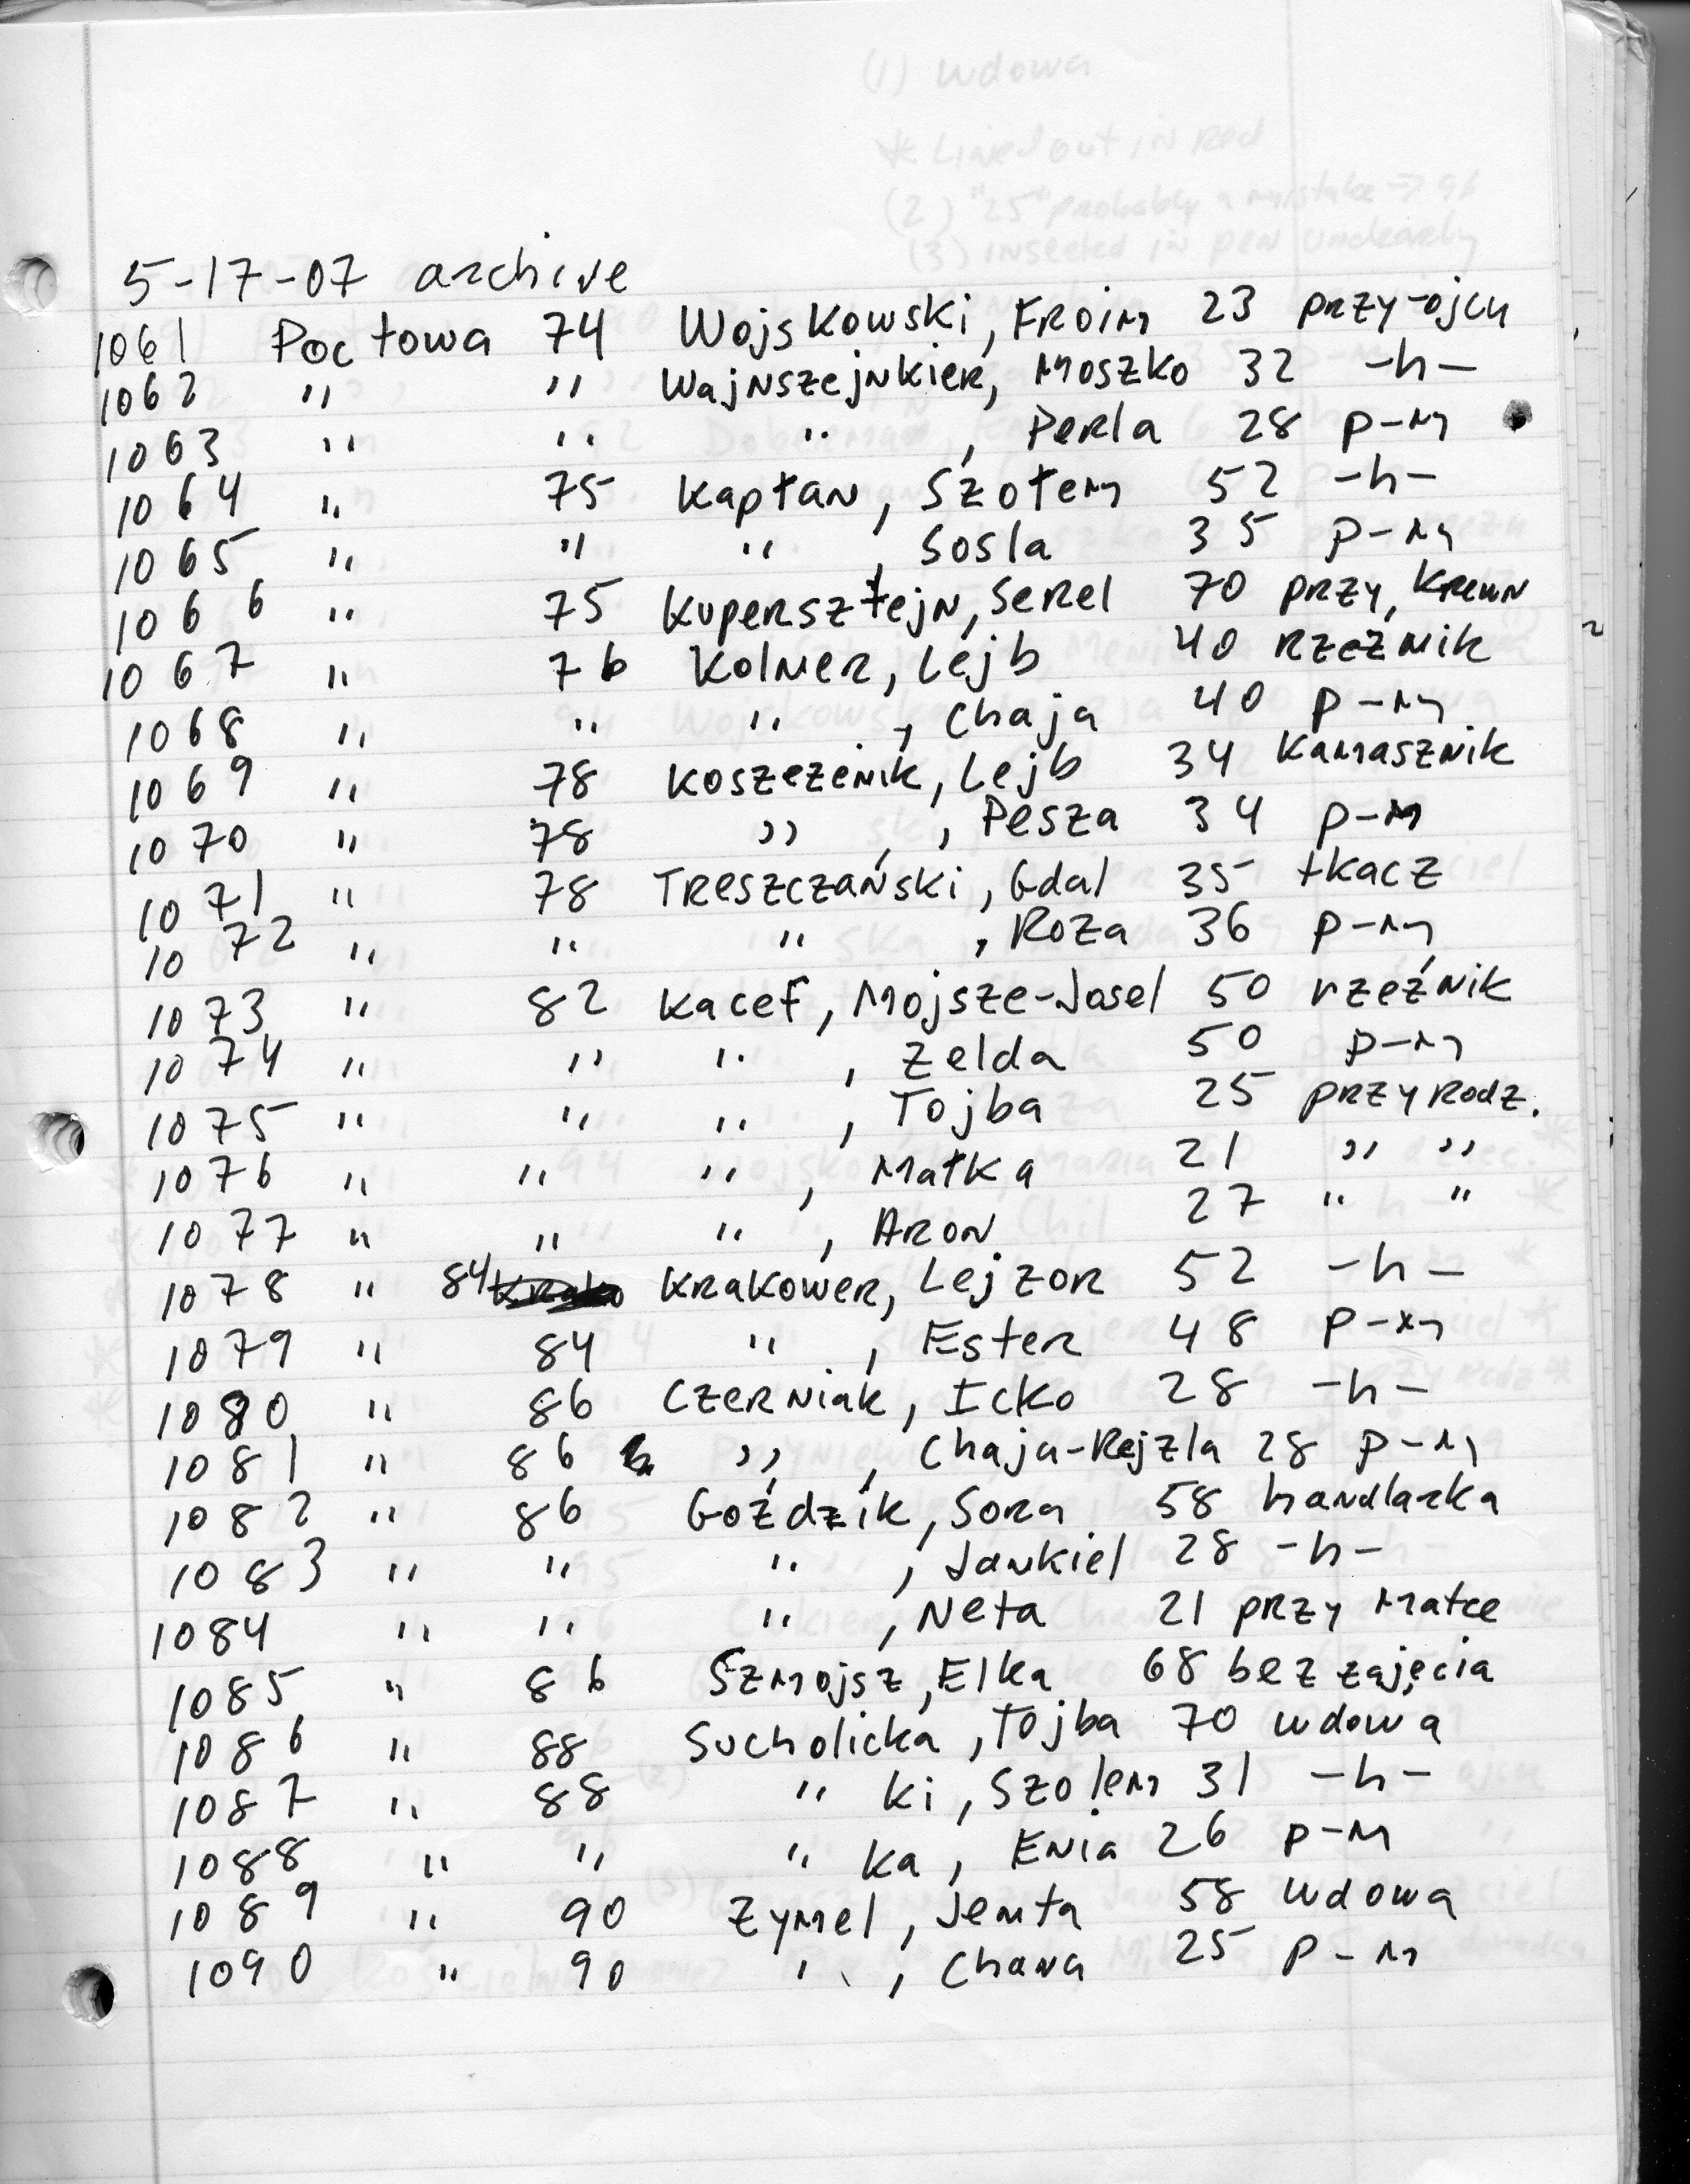 (1) wdowa
* Lined out in Red
(2) "25" probably a mistake → 96
(3) inserted in pen unclearly
5-17-07 archive
1061 Pocztowa 74 Wojskowski, Froim 23 przy-ojcu
1062 " " Wajnszejnkier, Moszko 32 -h-
1063 " " " , Perla 28 p-m
1064 " 75 Kapłan, Szołem 52 -h-
1065 " " " , Sosla 35 p-m
1066 " 75 Kupersztejn, Serel 70 przy, krewn
1067 " 76 Kolner, Lejb 40 rzeźnik
1068 " " " , Chaja 40 p-m
1069 " 78 Koszezenik, Lejb 34 Kamasznik
1070 " 78 " , Pesza 34 p-m
1071 " 78 Treszczański, Gdal 35 tkacz
1072 " " " , Roza 36 p-m
1073 " 82 Kacef, Mojsze-Josel 50 rzeźnik
1074 " " " , Zelda 50 p-m
1075 " " " , Tojba 25 przy rodz.
1076 " " " , Małka 21 " "
1077 " " " , Aron 27 " "
1078 " 84 Krakower, Lejzor 52 -h-
1079 " 84 " , Ester 48 p-m
1080 " 86 Czerniak, Icko 28 -h-
1081 " 86 " , Chaja-Rejzla 28 p-m
1082 " 86 Goździk, Sora 58 handlarka
1083 " " " , Jankiel 28 -h-
1084 " " " , Neta 21 przy matce
1085 " 86 Szmojsz, Elka 68 bez zajęcia
1086 " 88 Sucholicka, Tojba 70 wdowa
1087 " 88 " ki, Szolem 31 -h-
1088 " " " ka, Enia 26 p-m
1089 " 90 Zymel, Jenta 58 wdowa
1090 " 90 " , Chana 25 p-m